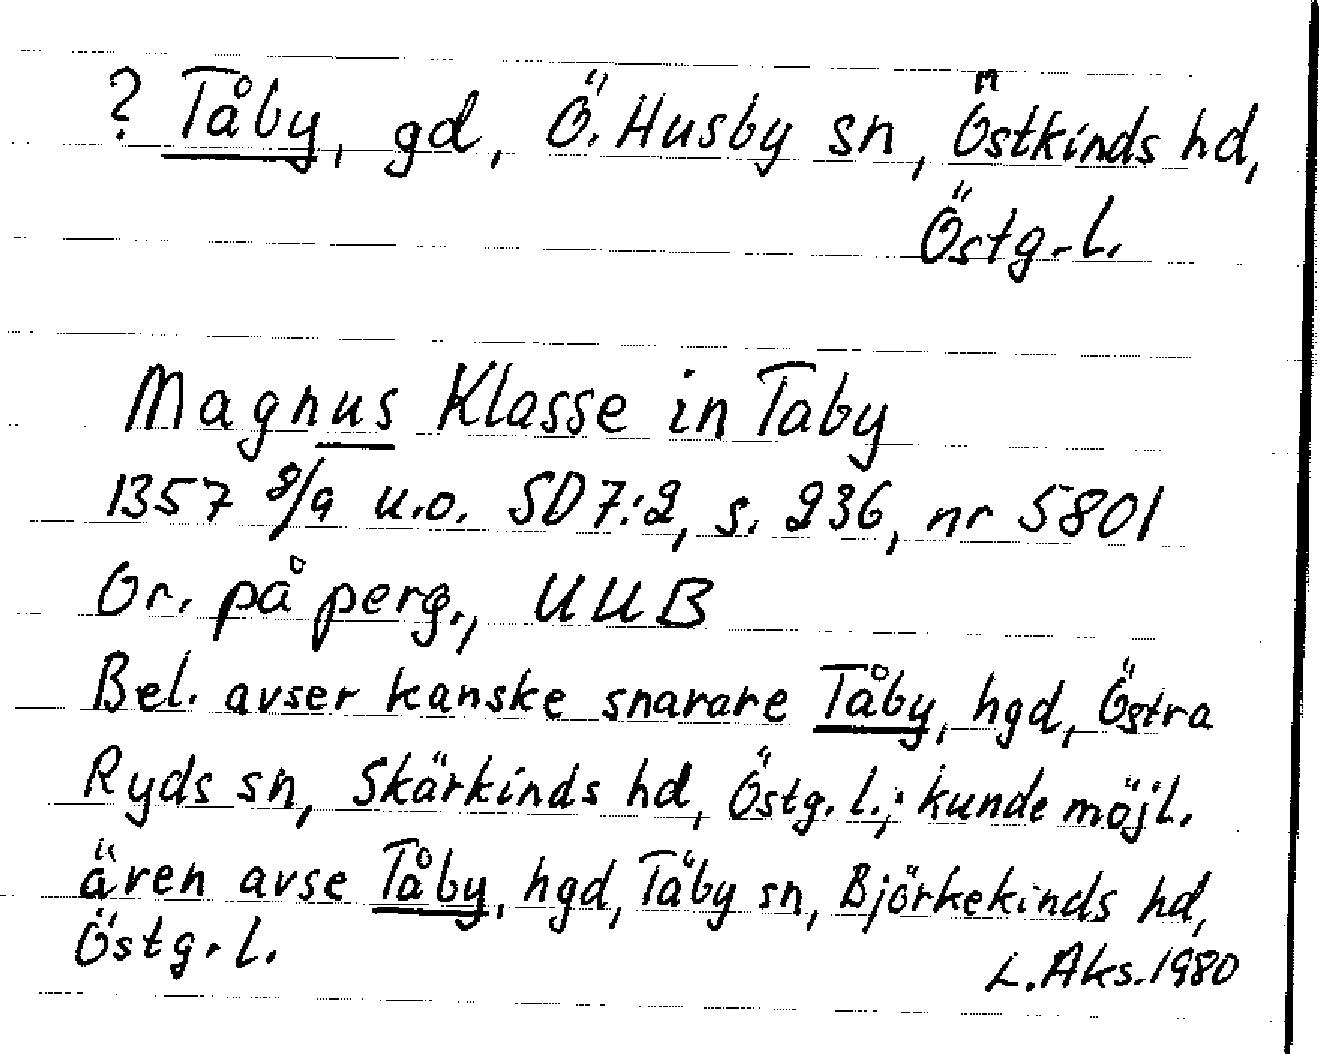 ? Tåby, gd, Ö. Husby sn, Östkinds hd,
Östg. l.
Magnus Klasse in Taby
1357 8/9 u.o. SD 7:2, s. 236, nr 5801
Or. på perg., UUB
Bel. avser kanske snarare Tåby, hgd, Östra
Ryds sn, Skärkinds hd, Östg. l.; kunde möjl.
även avse Tåby, hgd, Tåby sn, Björkekinds hd,
Östg. l.
L. Aks. 1980